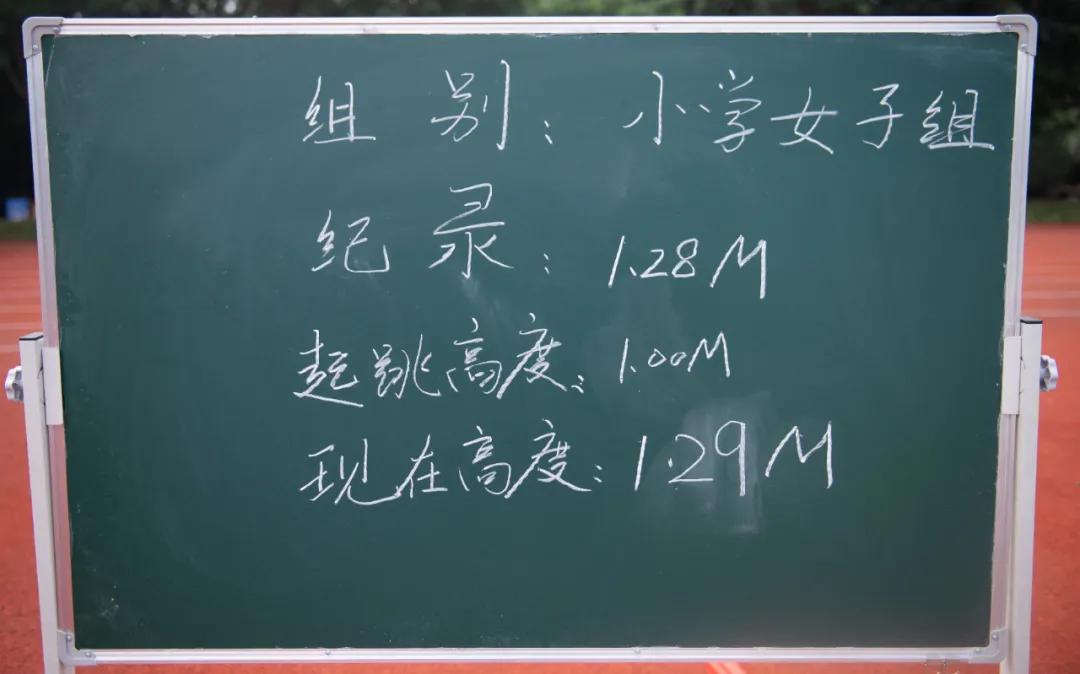 组别：小学女子组
纪录：1.28M
起跳高度：1.00M
现在高度：1.29M